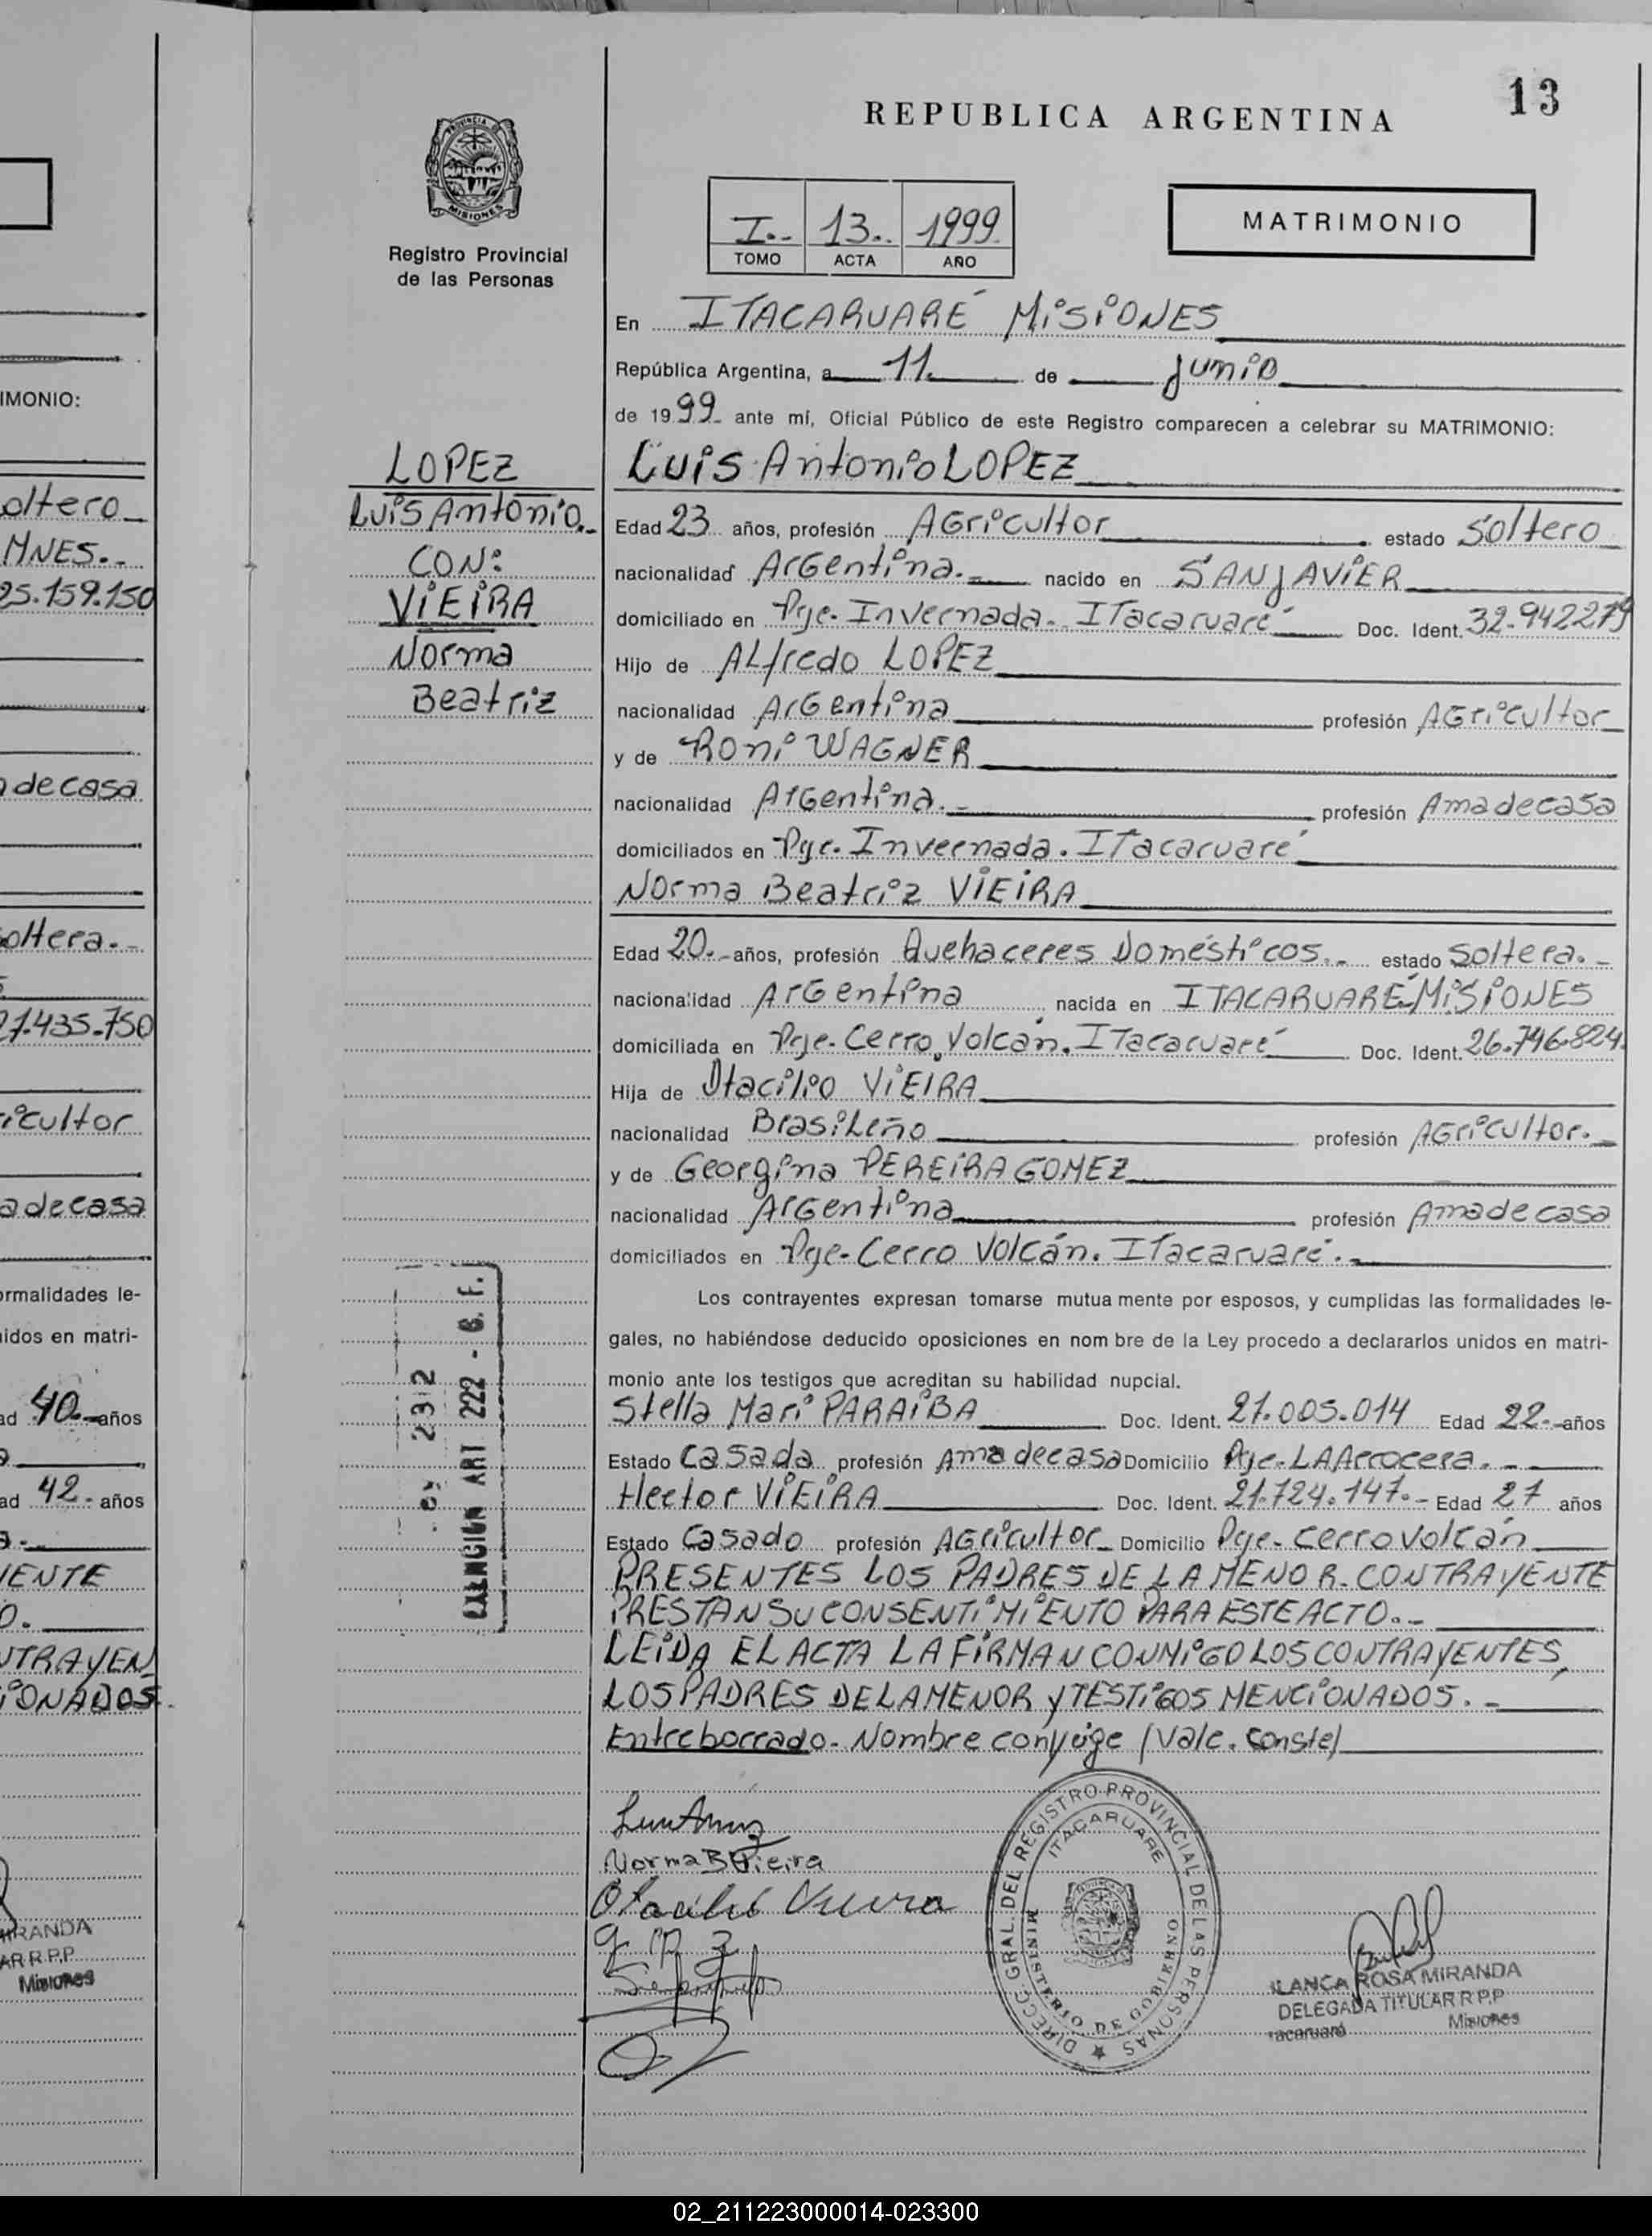 IMONIO:
oltero
MNES.-
25.159.150
adecasa
oltera.-
27.435.750
icultor
adecasa
ormalidades le-
idos en matri-
ad 40.- años
ad 42.- años
VENTE
O.
NTRAYEN
IONADOS.
MIRANDA
AR R.P.P.
Misiones
13
REPUBLICA ARGENTINA
PROVINCIA DE
MISIONES
Registro Provincial
de las Personas
I.- 13.. 1999
TOMO ACTA AÑO
MATRIMONIO
En ITACARUARÉ MISIONES
República Argentina, a 11. de junio
de 1999 ante mí, Oficial Público de este Registro comparecen a celebrar su MATRIMONIO:
LOPEZ
Luis Antonio.
CON:
VIEIRA
Norma
Beatriz
Luis Antonio LOPEZ
Edad 23 años, profesión AGricultor estado Soltero
nacionalidad ArGentina.- nacido en SAN jAVIER
domiciliado en Pje. Invernada. ITacaruaré Doc. Ident. 32.942279
Hijo de ALfredo LOPEZ
nacionalidad ArGentina profesión AGricultor
y de Roni WAGNER
nacionalidad ArGentina.- profesión Amadecasa
domiciliados en Pje. Invernada. ITacaruaré
Norma Beatriz VIEIRA
Edad 20.- años, profesión Quehaceres Domésticos.. estado Soltera.-
nacionalidad ArGentina nacida en ITACARUARÉ-MISIONES
domiciliada en Pje. Cerro Volcán. ITacaruaré Doc. Ident. 26.746.824
Hija de Otacilio VIEIRA
nacionalidad BrasiLeño profesión AGricultor.-
y de Georgina PEREIRA GOMEZ
nacionalidad ArGentina profesión Amadecasa
domiciliados en Pje. Cerro Volcán. ITacaruaré.-
Los contrayentes expresan tomarse mutua mente por esposos, y cumplidas las formalidades le-
gales, no habiéndose deducido oposiciones en nom bre de la Ley procedo a declararlos unidos en matri-
monio ante los testigos que acreditan su habilidad nupcial.
Stella Mari PARAIBA Doc. Ident. 27.005.014 Edad 22.- años
Estado Casada profesión Amadecasa Domicilio Pje. LA Arrocera.-
Hector VIEIRA Doc. Ident. 21.724.147.- Edad 27 años
Estado Casado profesión AGricultor Domicilio Pje. Cerro Volcán
PRESENTES LOS PADRES DE LA MENOR. CONTRAYENTE
PRESTAN SU CONSENTIMIENTO PARA ESTE ACTO.-
LEIDA EL ACTA LA FIRMAN CONMIGO LOS CONTRAYENTES,
LOS PADRES DE LA MENOR Y TESTIGOS MENCIONADOS.-
Entreborrado. Nombre conyuge (Vale. Conste)
EXENCION ART 222 - 6. F.
232
Norma B Vieira
Otacilio Vieira
DIRECC. GRAL. DEL REGISTRO PROVINCIAL DE LAS PERSONAS
ITACARUARE
MINISTERIO DE GOBIERNO
BLANCA ROSA MIRANDA
DELEGADA TITULAR R.P.P
Itacaruaré Misiones
02_211223000014-023300